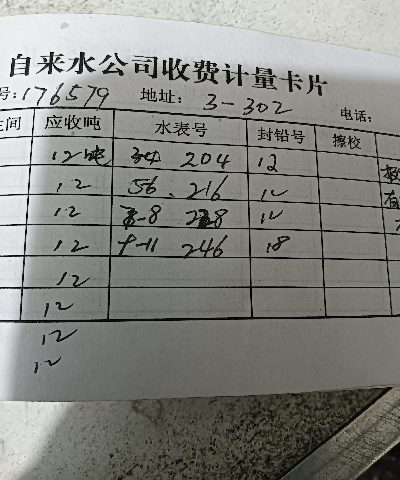 自来水公司收费计量卡片
号:176579 地址: 3-302 电话:
间 应收吨 水表号 封铅号 擦校
12吨 204 12
12 56. 216 12
12 7-8 228 12
12 9-11 246 18
12
12
12
12